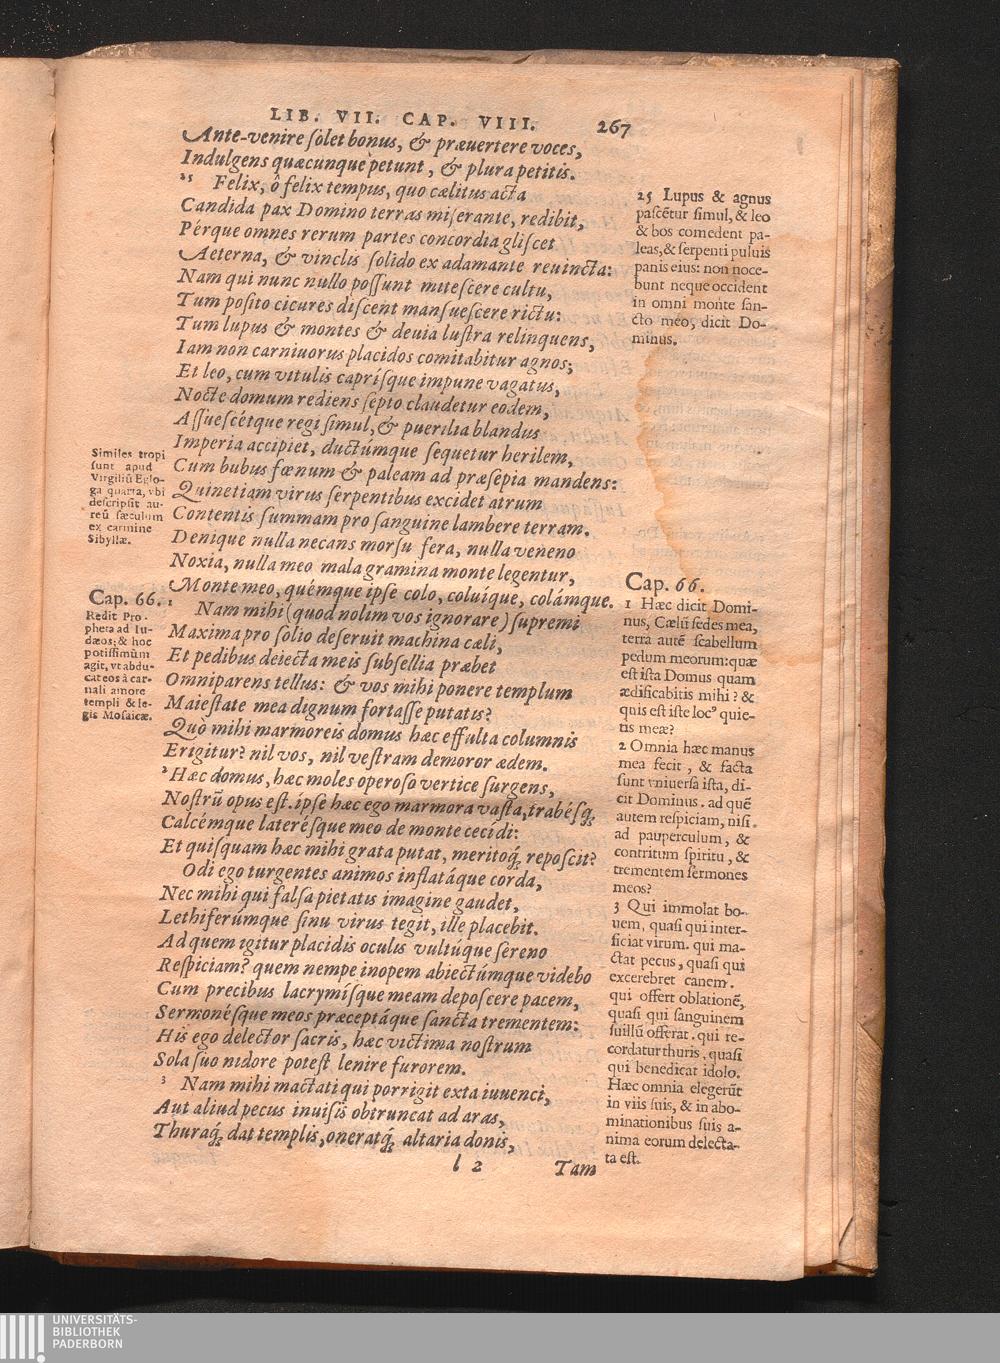 LIB. VII. CAP. VIII. 267
Ante-venire sôlet bonus, & præuertere voces,
Indulgens quæcunque petunt, & plura petitis.
25 Felix, ô felix tempus, quo cælitus acta
Candida pax Domino terras miserante, redibit,
Pérque omnes rerum partes concordia gliscet
Aeterna, & vinclis solido ex adamante reuincta:
Nam qui nunc nullo possunt mitescere cultu,
Tum posito cicures discent mansuescere rictu:
Tum lupus & montes & deuia lustra relinquens,
Iam non carniuorus placidos comitabitur agnos;
Et leo, cum vitulis caprisque impune vagatus,
Nocte domum rediens septo claudetur eodem,
Assuescétque regi simul, & puerilia blandus
Imperia accipiet, ductúmque sequetur herilem,
Cum bubus fœnum & paleam ad præsepia mandens:
Quinetiam virus serpentibus excidet atrum
Contentis summam pro sanguine lambere terram.
Denique nulla necans morsu fera, nulla veneno
Noxia, nulla meo mala gramina monte legentur,
Monte meo, quémque ipse colo, coluíque, colámque.
1 Nam mihi (quod nolim vos ignorare) supremi
Maxima pro solio deseruit machina cæli,
Et pedibus deiecta meis subsellia præbet
Omniparens tellus: & vos mihi ponere templum
Maiestate mea dignum fortasse putatis?
Quò mihi marmoreis domus hæc effulta columnis
Erigitur? nil vos, nil vestram demoror ædem.
2 Hæc domus, hæc moles operoso vertice surgens,
Nostrũ opus est. ipse hæc ego marmora vasta, trabésq;
Calcémque laterésque meo de monte cecídi:
Et quisquam hæc mihi grata putat, meritoq; reposcit?
Odi ego turgentes animos inflatáque corda,
Nec mihi qui falsa pietatis imagine gaudet,
Lethiferúmque sinu virus tegit, ille placebit.
Ad quem igitur placidis oculis vultúque sereno
Respiciam? quem nempe inopem abiectúmque videbo
Cum precibus lacrymísque meam deposcere pacem,
Sermonésque meos præceptáque sancta trementem:
His ego delector sacris, hæc victima nostrum
Sola suo nidore potest lenire furorem.
3 Nam mihi mactati qui porrigit exta iuuenci,
Aut aliud pecus inuisis obtruncat ad aras,
Thuraq; dat templis, oneratq; altaria donis,
l 2 Tam
Similes tropi
sunt apud
Virgiliũ Eglo-
ga quarta, vbi
descripsit au-
reũ sæculum
ex carmine
Sibyllæ.
Cap. 66.
Redit Pro-
pheta ad Iu-
dæos; & hoc
potissimùm
agit, vt abdu-
cat eos à car-
nali amore
templi & le-
gis Mosaicæ.
25 Lupus & agnus
pascẽtur simul, & leo
& bos comedent pa-
leas, & serpenti puluis
panis eius: non noce-
bunt neque occident
in omni monte san-
cto meo, dicit Do-
minus.
Cap. 66.
1 Hæc dicit Domi-
nus, Cælũ sedes mea,
terra autẽ scabellum
pedum meorum: quæ
est ista Domus quam
ædificabitis mihi? &
quis est iste locꝰ quie-
tis meæ?
2 Omnia hæc manus
mea fecit, & facta
sunt vniuersa ista, di-
cit Dominus. ad quẽ
autem respiciam, nisi
ad pauperculum, &
contritum spiritu, &
trementem sermones
meos?
3 Qui immolat bo-
uem, quasi qui inter-
ficiat virum. qui ma-
ctat pecus, quasi qui
excerebret canem.
qui offert oblationẽ,
quasi qui sanguinem
suillũ offerat. qui re-
cordatur thuris, quasi
qui benedicat idolo.
Hæc omnia elegerũt
in viis suis, & in abo-
minationibus suis a-
nima eorum delecta-
ta est.
UNIVERSITÄTS-
BIBLIOTHEK
PADERBORN